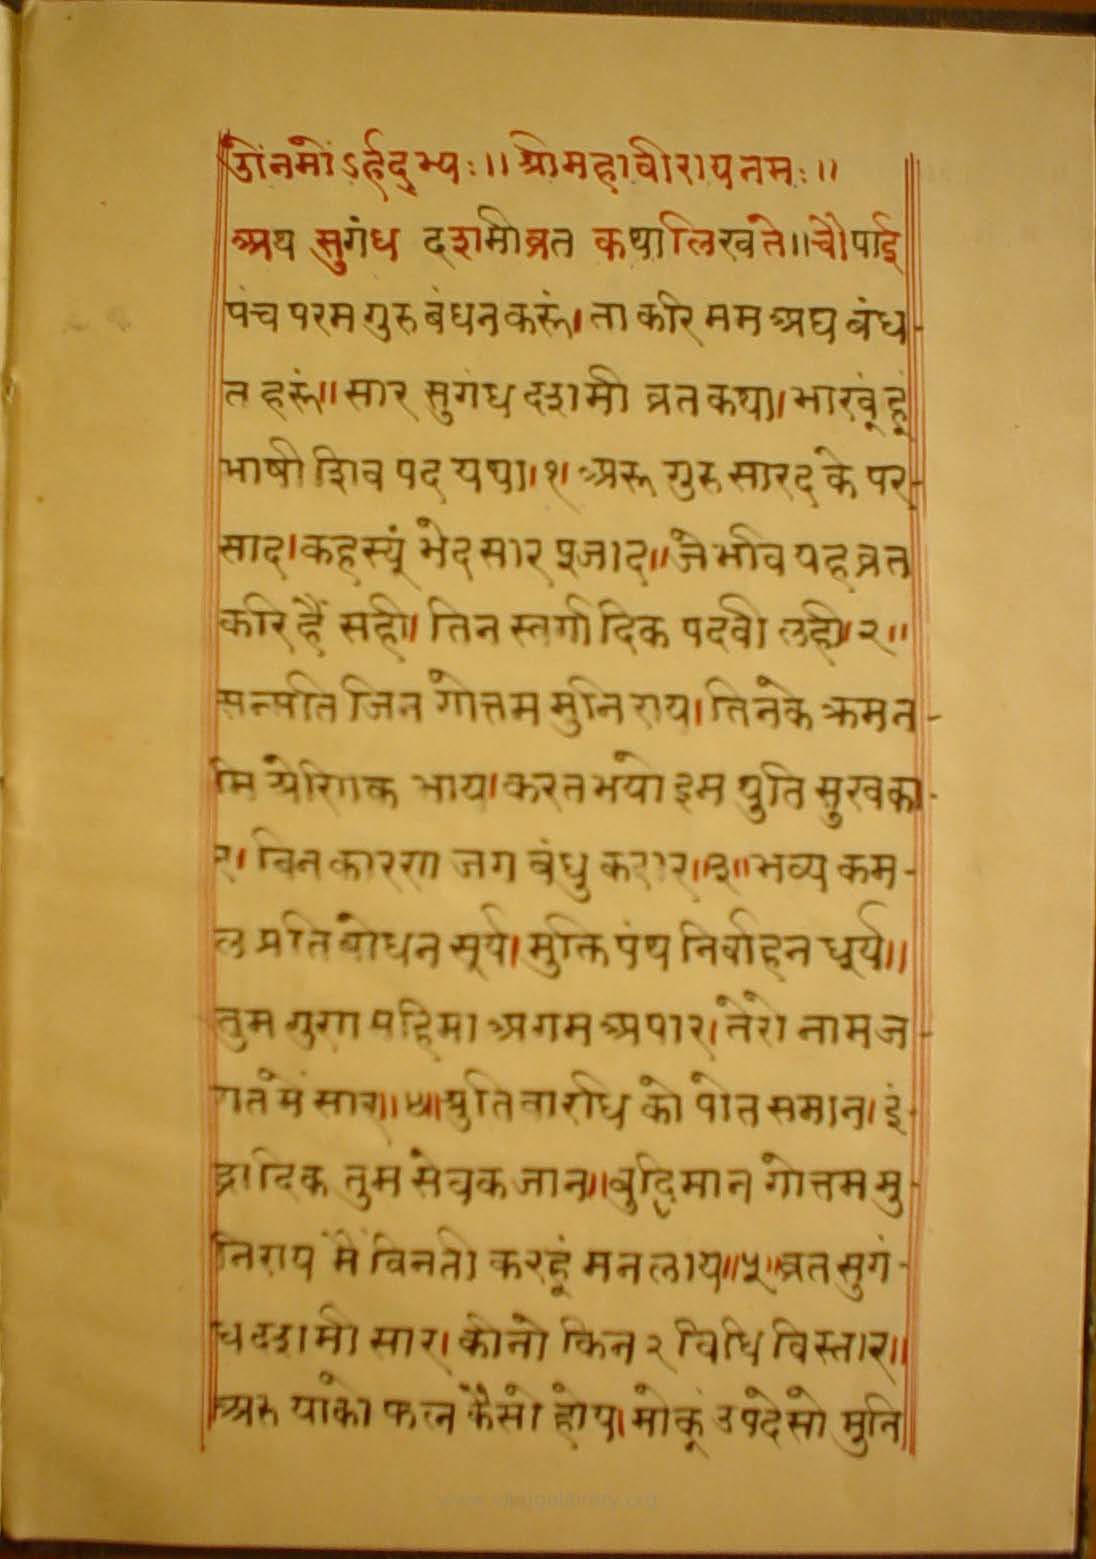 ॐनमोंऽर्हद्भ्यः॥ श्रीमहावीरायनमः॥
अथ सुगंध दशमीव्रत कथालिखते॥चौपाई
पंच परम गुरु बंधन करूं।ता करि मम अघ बंध-
न हरूं॥ सार सुगंध दशमी व्रत कथा।भाखूं हूं
भाषी शिव पद यथा।१। अरू गुरु सारद के पर-
साद।कहस्यूं भेद सार पूजाद॥जे भवि यह व्रत
करि हैं सही।तिन स्वर्गादिक पदवी लही॥२॥
सन्मति जिन गोत्तम मुनि राय।तिनके क्रमन-
मि श्रेणिक भाय।करत भयो इम थुति सुखका-
र।विन कारण जग बंधु करार॥३॥भव्य कम-
ल प्रति बोधन सूर्य।मुक्ति पंथ निर्वाहन धूर्य॥
तुम गुण महिमा अगम अपार।तेरो नाम ज-
गत में सार॥४॥श्रुति वारधि को पोत समान।इं-
द्रादिक तुम सेवक जान॥बुद्धिमान गोत्तम मु-
निराय मैं विनती करहूं मन लाय॥५॥व्रत सुगं-
ध दशमी सार।कीनो किन २ विधि विस्तार॥
अरु याको फल कैसो होय।मोकूं उपदेसो मुनि
www.jainelibrary.org